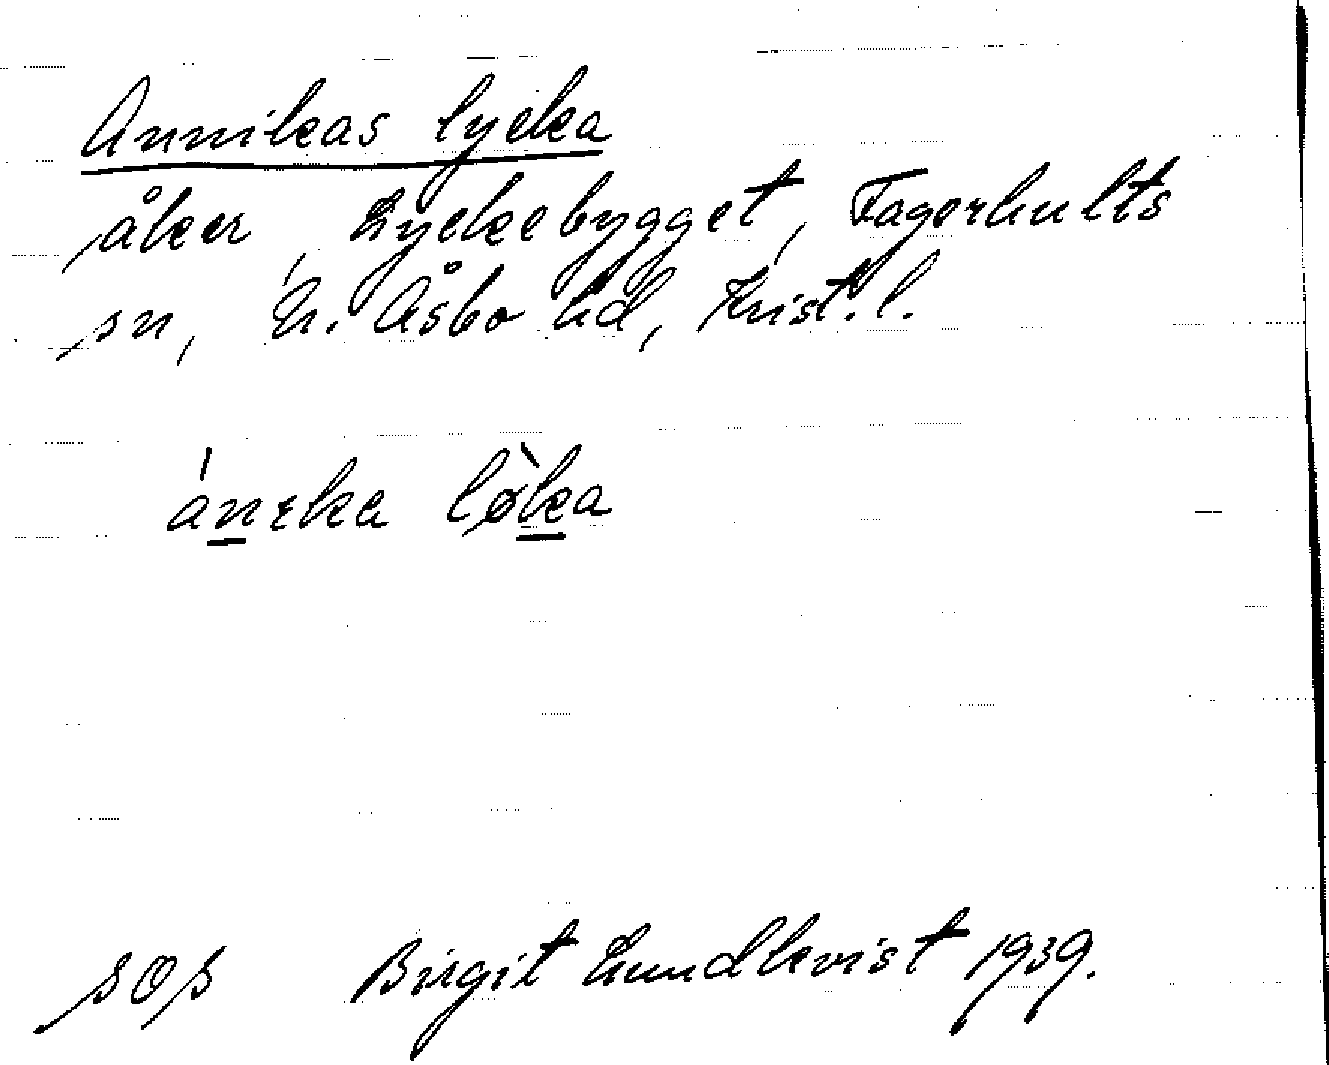 Annikas lycka
åker, Lyckebygget, Fagerhults
sn, N. Åsbo hd, Krist. l.
ánɛka lø̀ka
sos Birgit Lundkvist 1939.